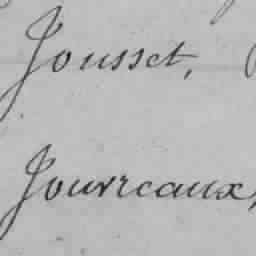 Jousset,
Jouvreaux,